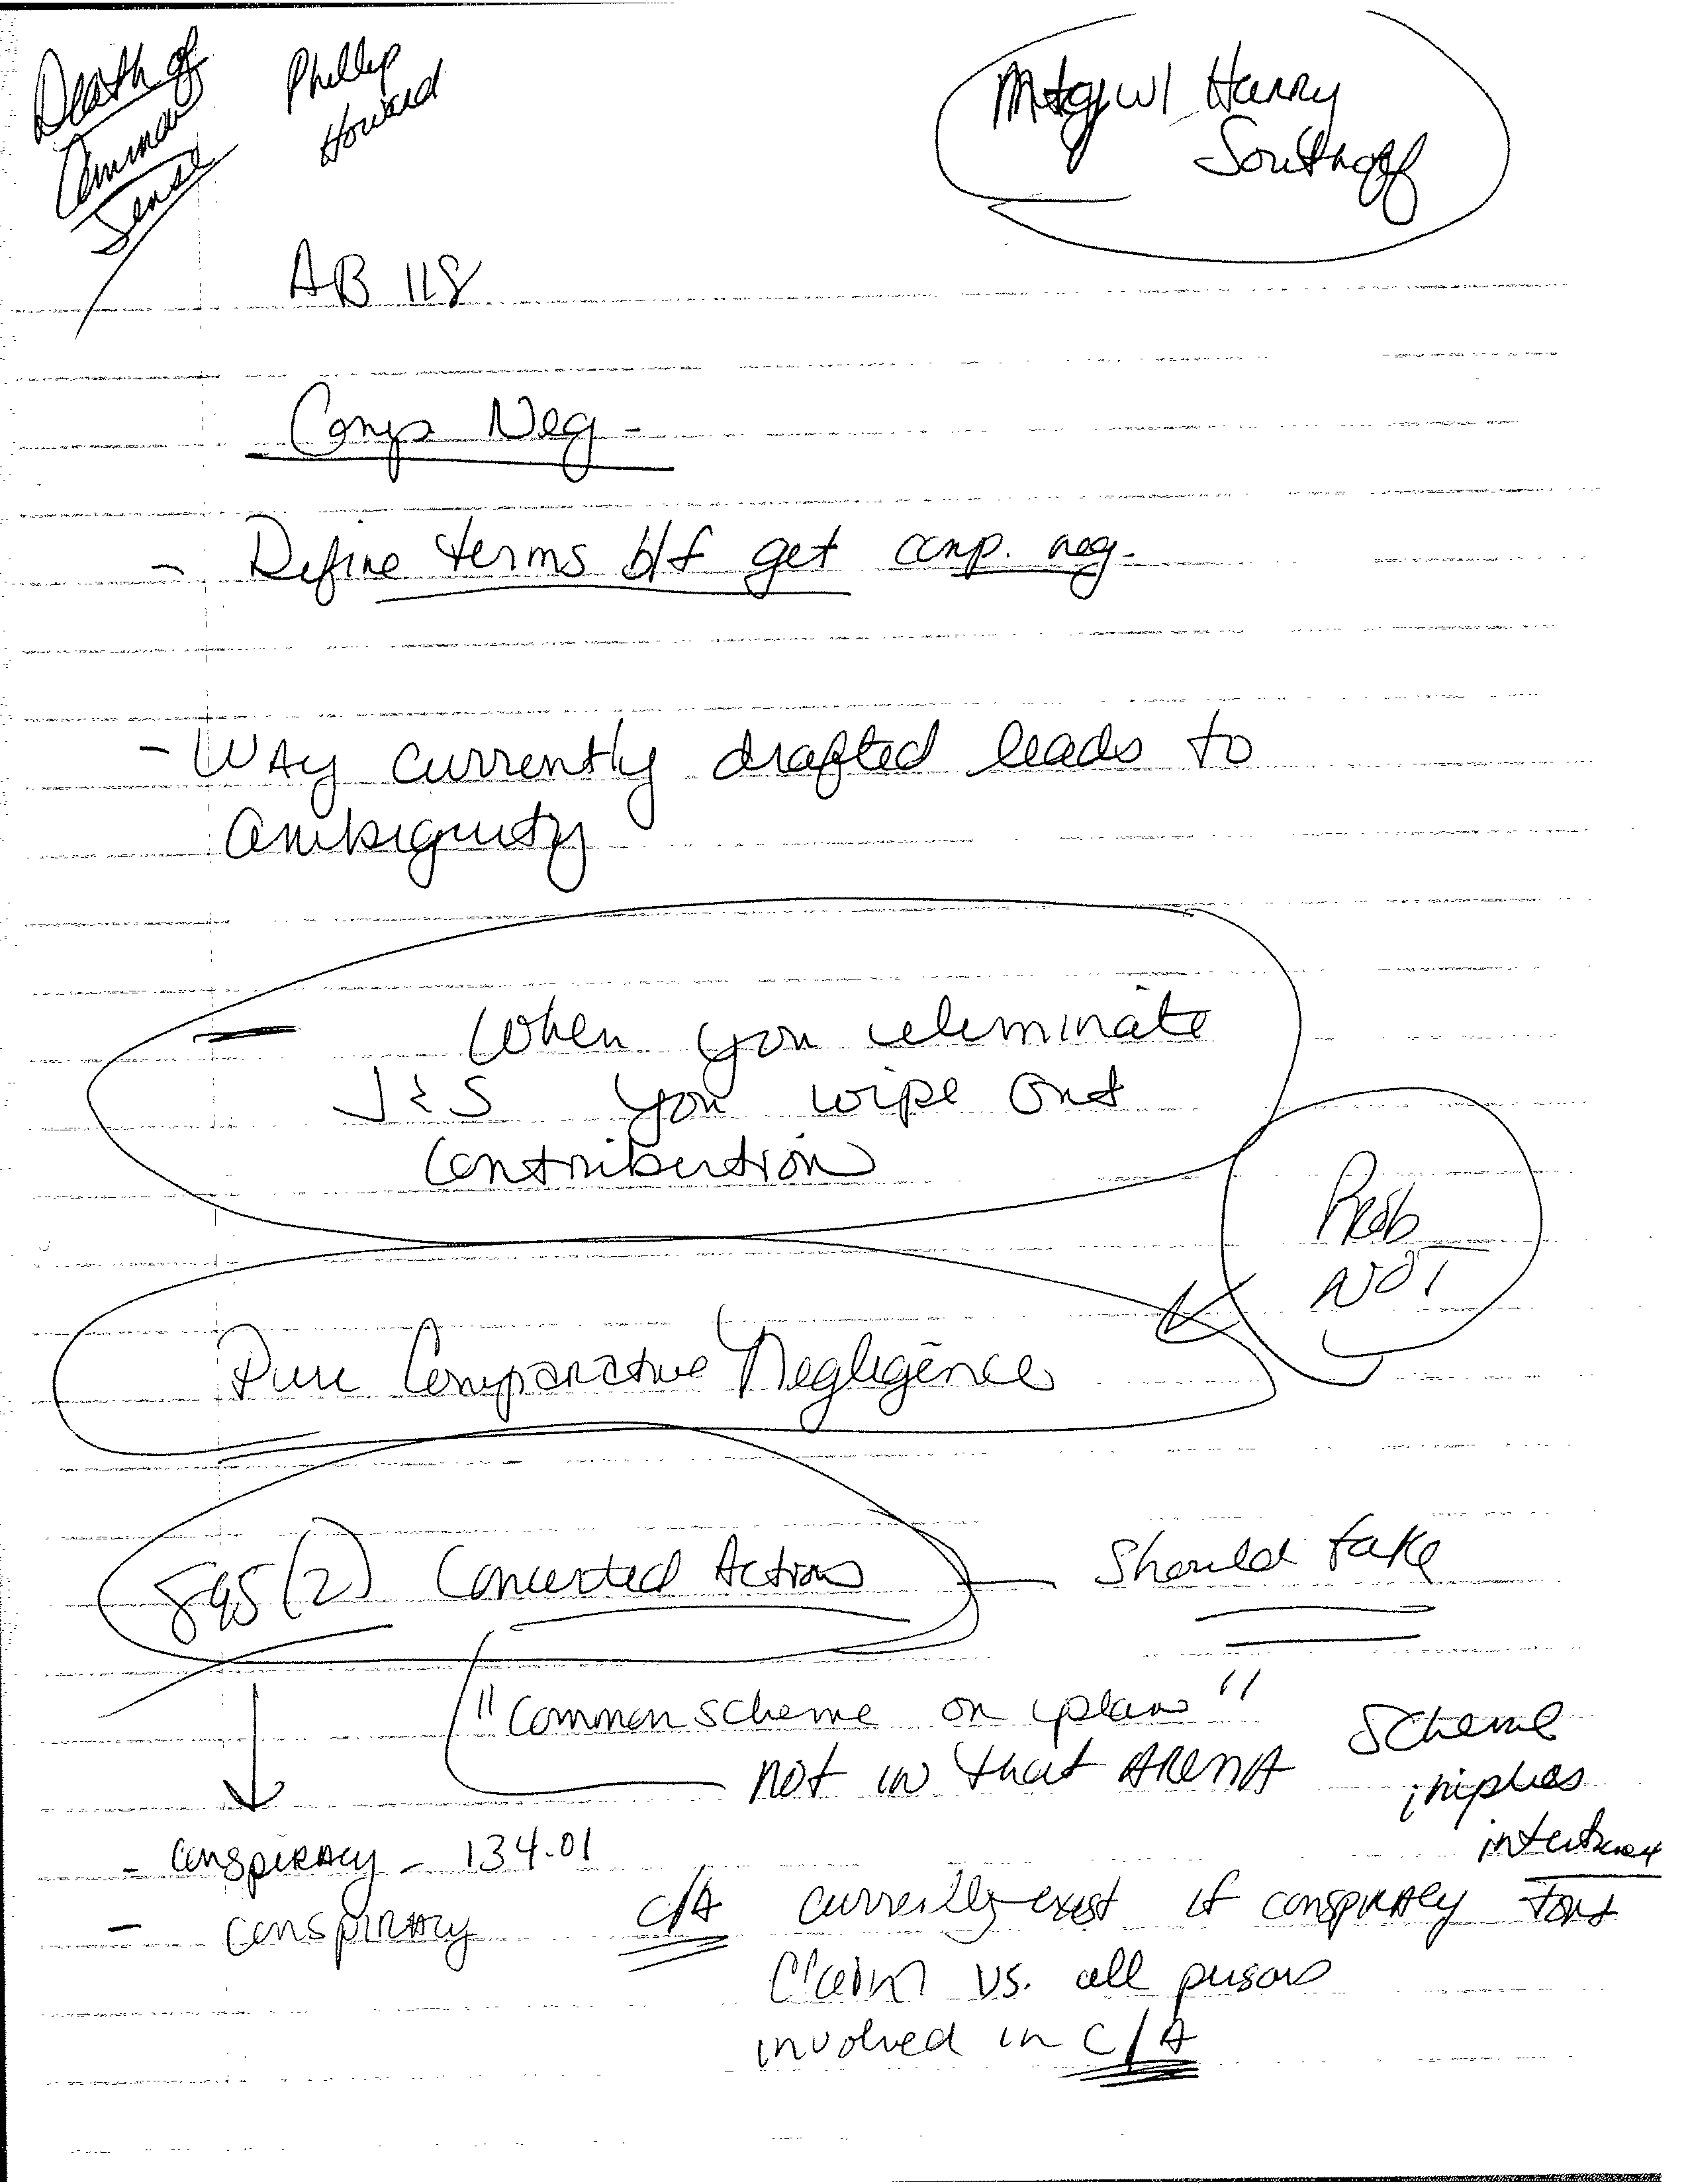 Death of
Common
Sense
Phillip
Howard
Mtg w/ Harry
Southoff
AB 118
Comp Neg -
- Define terms b/f get comp. neg.
- Way currently drafted leads to
ambiguity
- When you eliminate
J & S you wipe out
contribution
Prob
NOT
Pure Comparative Negligence
895(2) Concerted Action — Should take
"Common scheme or plan"
not in that ARENA
Scheme
implies
- Conspiracy - 134.01
- conspiracy
C/A currently exist if conspiracy tort
Claim vs. all persons
involved in C/A